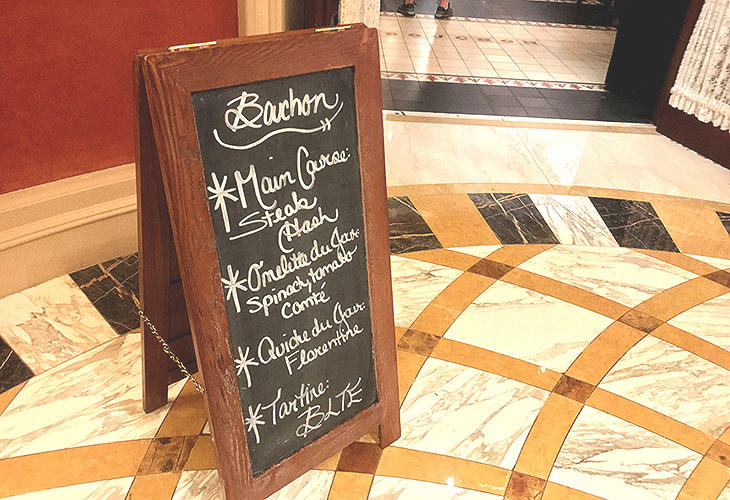 Bouchon
* Main Course:
Steak
Hash
* Omelitte du Jour:
Spinach, tomato
Comté
* Quiche du Jour:
Florentine
* Tartine:
BLTE